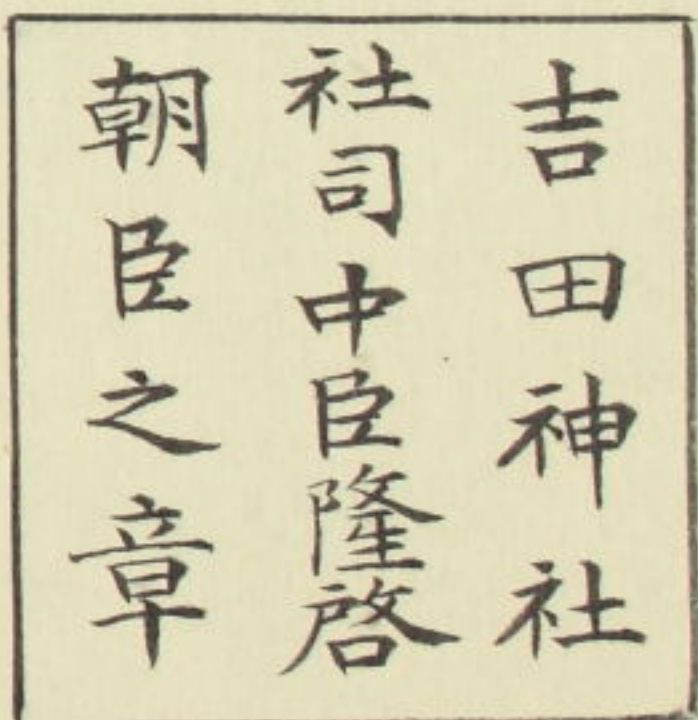 吉田神社
社司中臣隆啓
朝臣之章